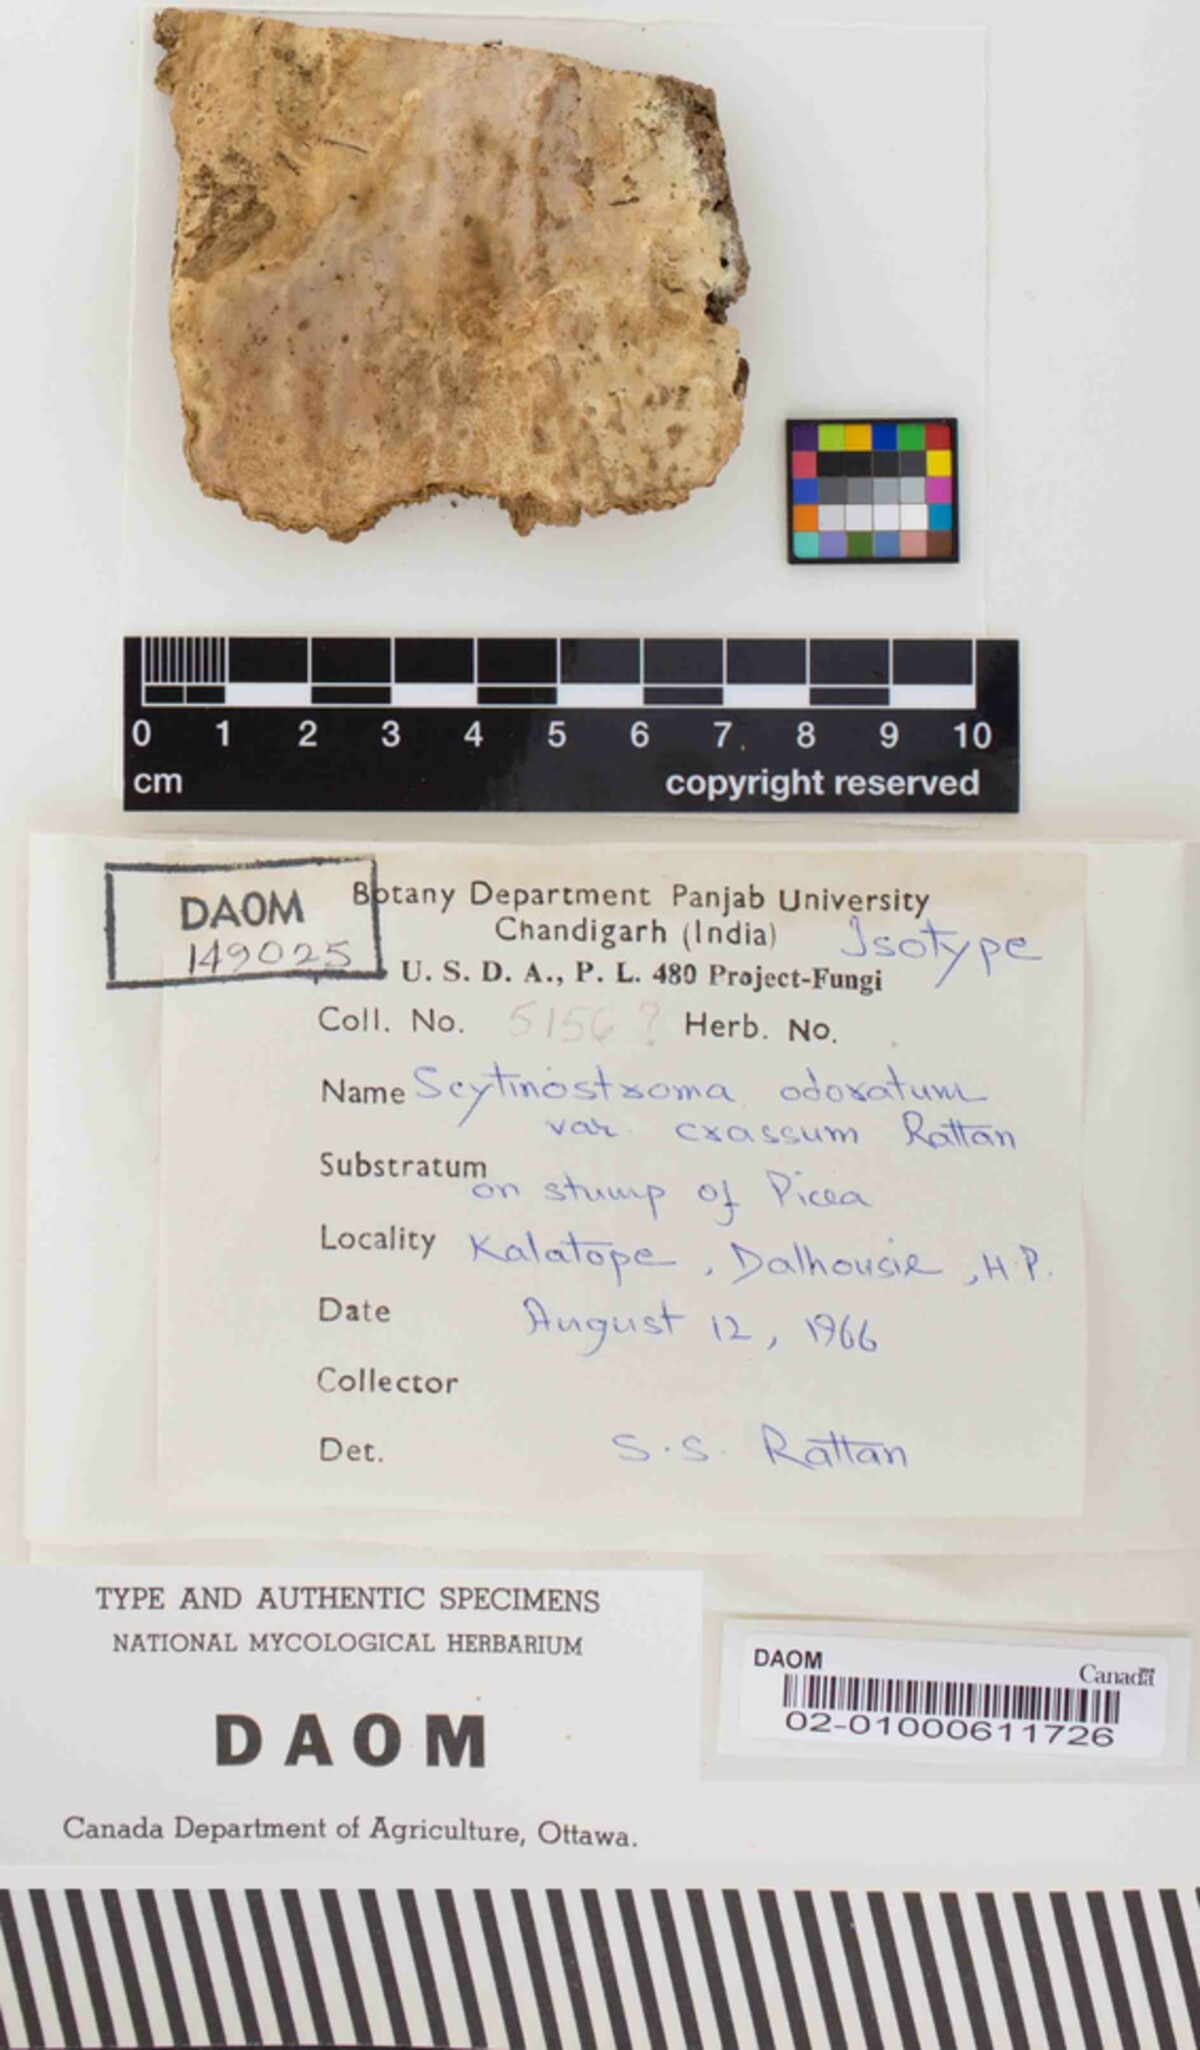 0 1 2 3 4 5 6 7 8 9 10
cm copyright reserved
DAOM
149025
Botany Department Panjab University
Chandigarh (India)
Isotype
U. S. D. A., P. L. 480 Project-Fungi
Coll. No. 5156? Herb. No.
Name Scytinostroma odoratum
var. crassum Rattan
Substratum on stump of Picea
Locality Kalatope, Dalhousie, H.P.
Date August 12, 1966
Collector
Det. S.S. Rattan
TYPE AND AUTHENTIC SPECIMENS
NATIONAL MYCOLOGICAL HERBARIUM
DAOM
Canada Department of Agriculture, Ottawa.
DAOM
Canada
02-01000611726